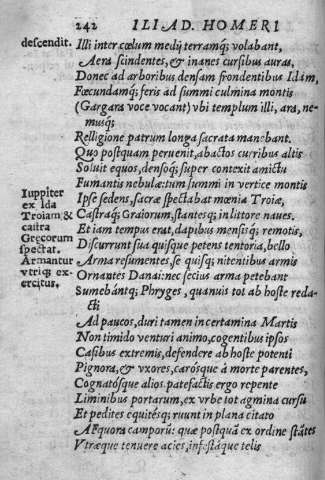 242 ILIAD. HOMERI
descendit.
Illi inter cœlum medij terramq; volabant,
Aera scindentes, & inanes cursibus auras,
Donec ad arboribus densam frondentibus Idam,
Fœcundamq; feris ad summi culmina montis
(Gargara voce vocant) vbi templum illi, ara, ne-
musq;
Relligione patrum longa sacrata manebant.
Quo postquam peruenit, abactos curribus altis
Soluit equos, densoq; super contexit amictu
Fumantis nebulæ: tum summi in vertice montis
Iuppiter
ex Ida
Troiam &
castra
Grecorum
spectat.
Armantur
vtriq; ex-
ercitus.
Ipse sedens, sacræ spectabat mœnia Troiæ,
Castraq; Graiorum, stantesq; in littore naues.
Et iam tempus erat, dapibus mensisq; remotis,
Discurrunt sua quisque petens tentoria, bello
Arma resumentes, se quisq; nitentibus armis
Ornantes Danai: nec secius arma petebant
Sumebántq; Phryges, quanuis tot ab hoste reda-
cti
Ad paucos, duri tamen in certamina Martis
Non timido venturi animo, cogentibus ipsos
Casibus extremis, defendere ab hoste potenti
Pignora, & vxores, carósque à morte parentes,
Cognatósque alios. patefactis ergo repente
Liminibus portarum, ex vrbe tot agmina cursu
Et pedites equitesq; ruunt in plana citato
AEquora camporũ: quæ postquã ex ordine stãtes
Vtræque tenuere acies, infestáque telis